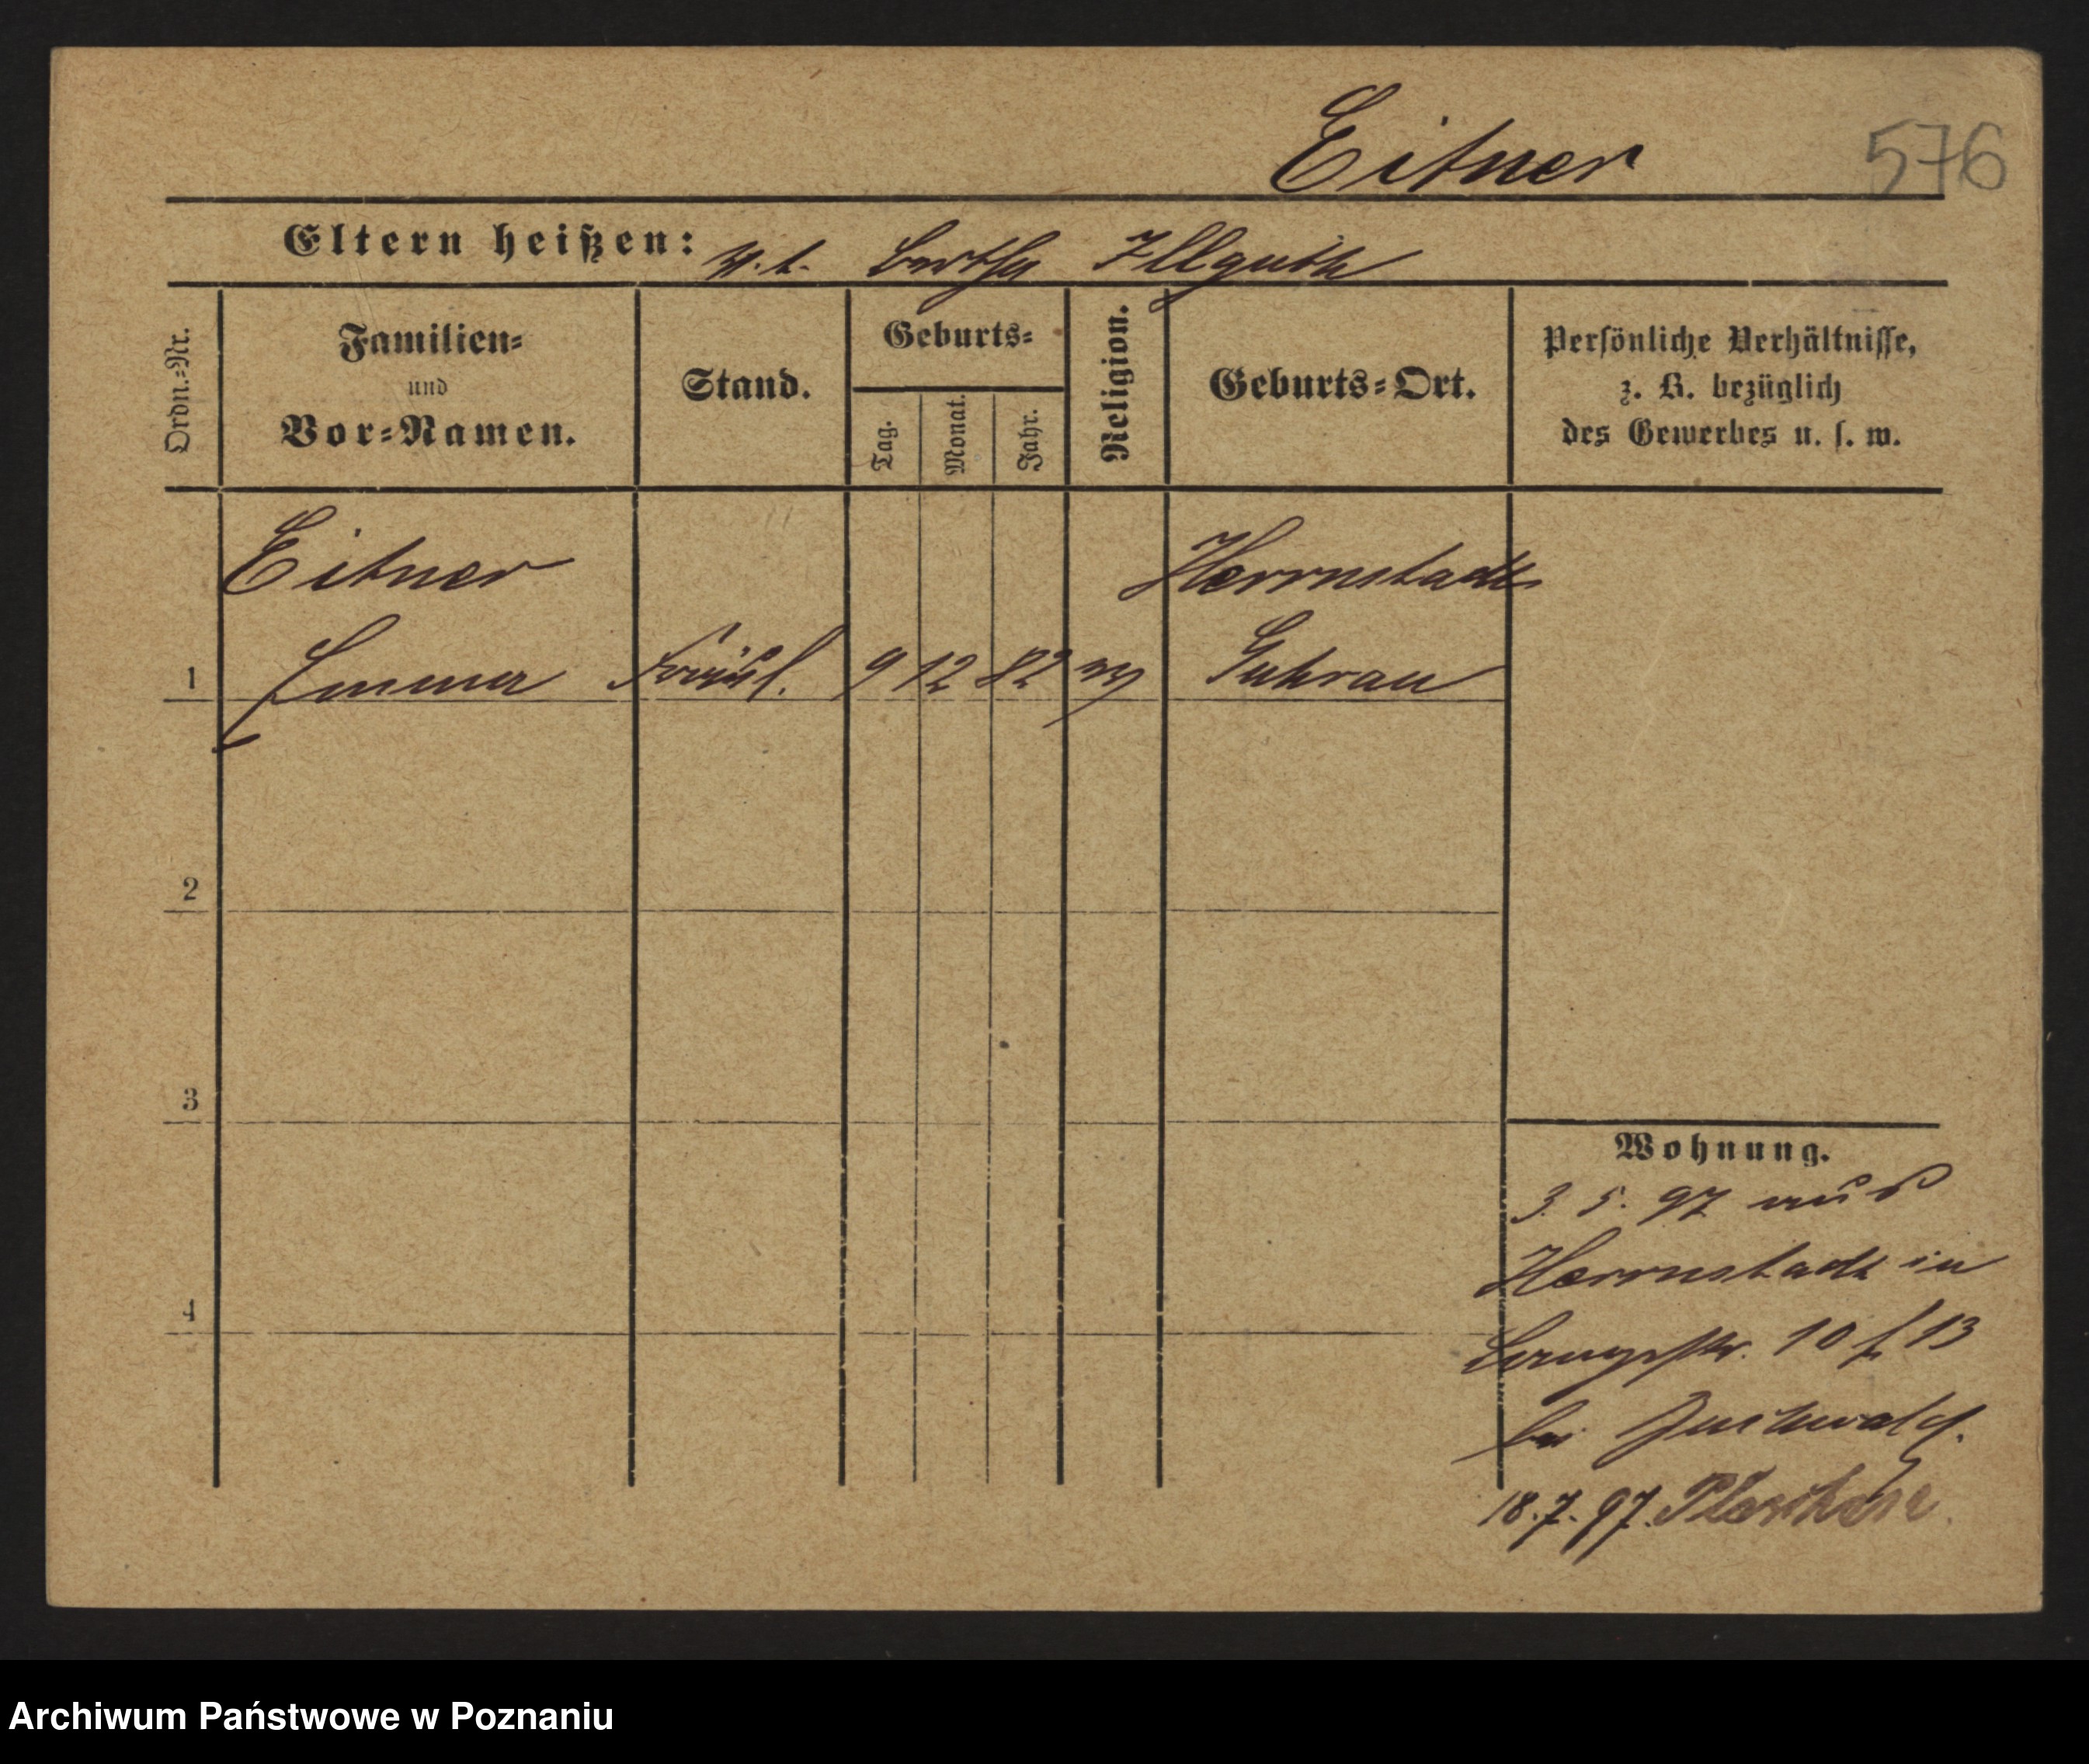 Eitner
576
Eltern heißen: u. t. Bertha Illguth
Ordn.-Nr.
Familien-
und
Vor-Namen.
Stand.
Geburts-
Tag.
Monat.
Jahr.
Religion.
Geburts-Ort.
Persönliche Verhältnisse,
z. B. bezüglich
des Gewerbes u. s. w.
Eitner
Herrnstadt
1 Emma Fräul. 9 12 82 Guhrau
2
3
4
Wohnung.
3. 5. 97 aus
Herrnstadt in
10 13
bei
18. 7. 97. Pleschen
Archiwum Państwowe w Poznaniu